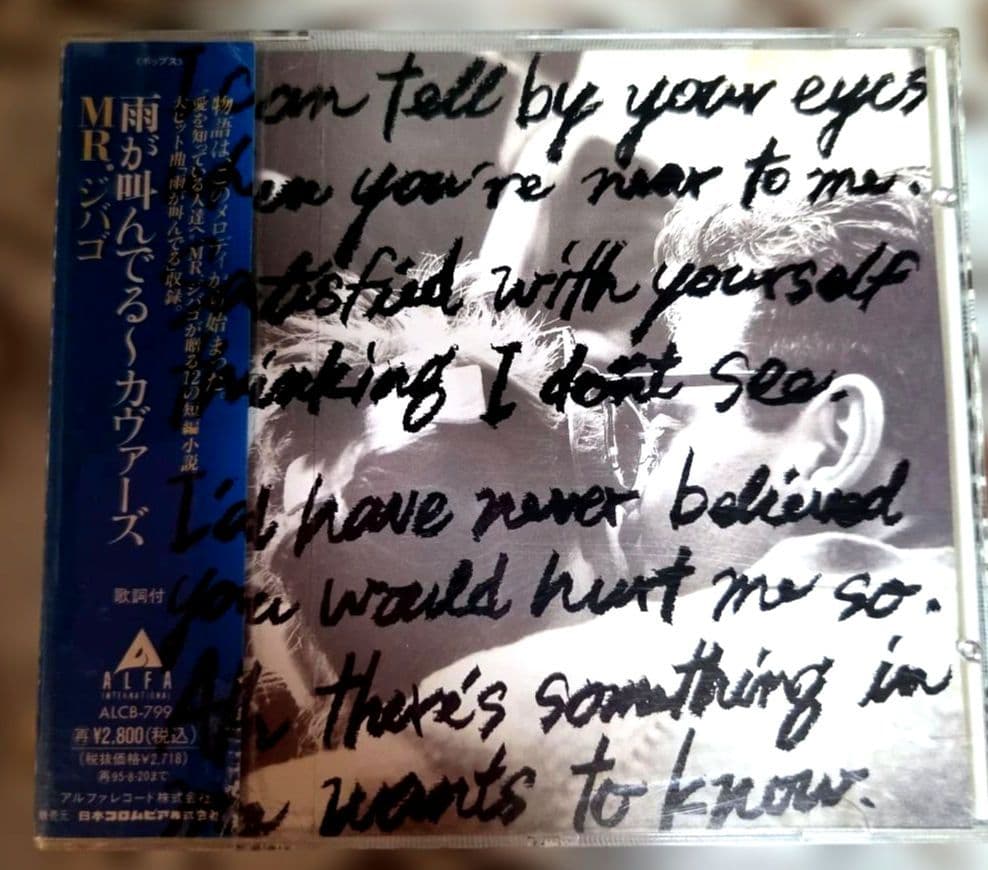 (ポップス)
雨が叫んでる〜カヴァーズ
MR.ジバゴ
物語は、このメロディから始まった。
"愛を知っている人達へ"MR.ジバゴが贈る12の短編小説
大ヒット曲「雨が叫んでる」収録。
歌詞付
ALFA
INTERNATIONAL
ALCB-799
再¥2,800(税込)
(税抜価格¥2,718)
再95・8・20まで
アルファレコード株式会社
発売元 日本コロムビア株式会社
I can tell by your eyes
when you're near to me.
satisfied with yourself
thinking I don't see.
I'd have never believed
you would hurt me so.
Ah there's something in
wants to know.